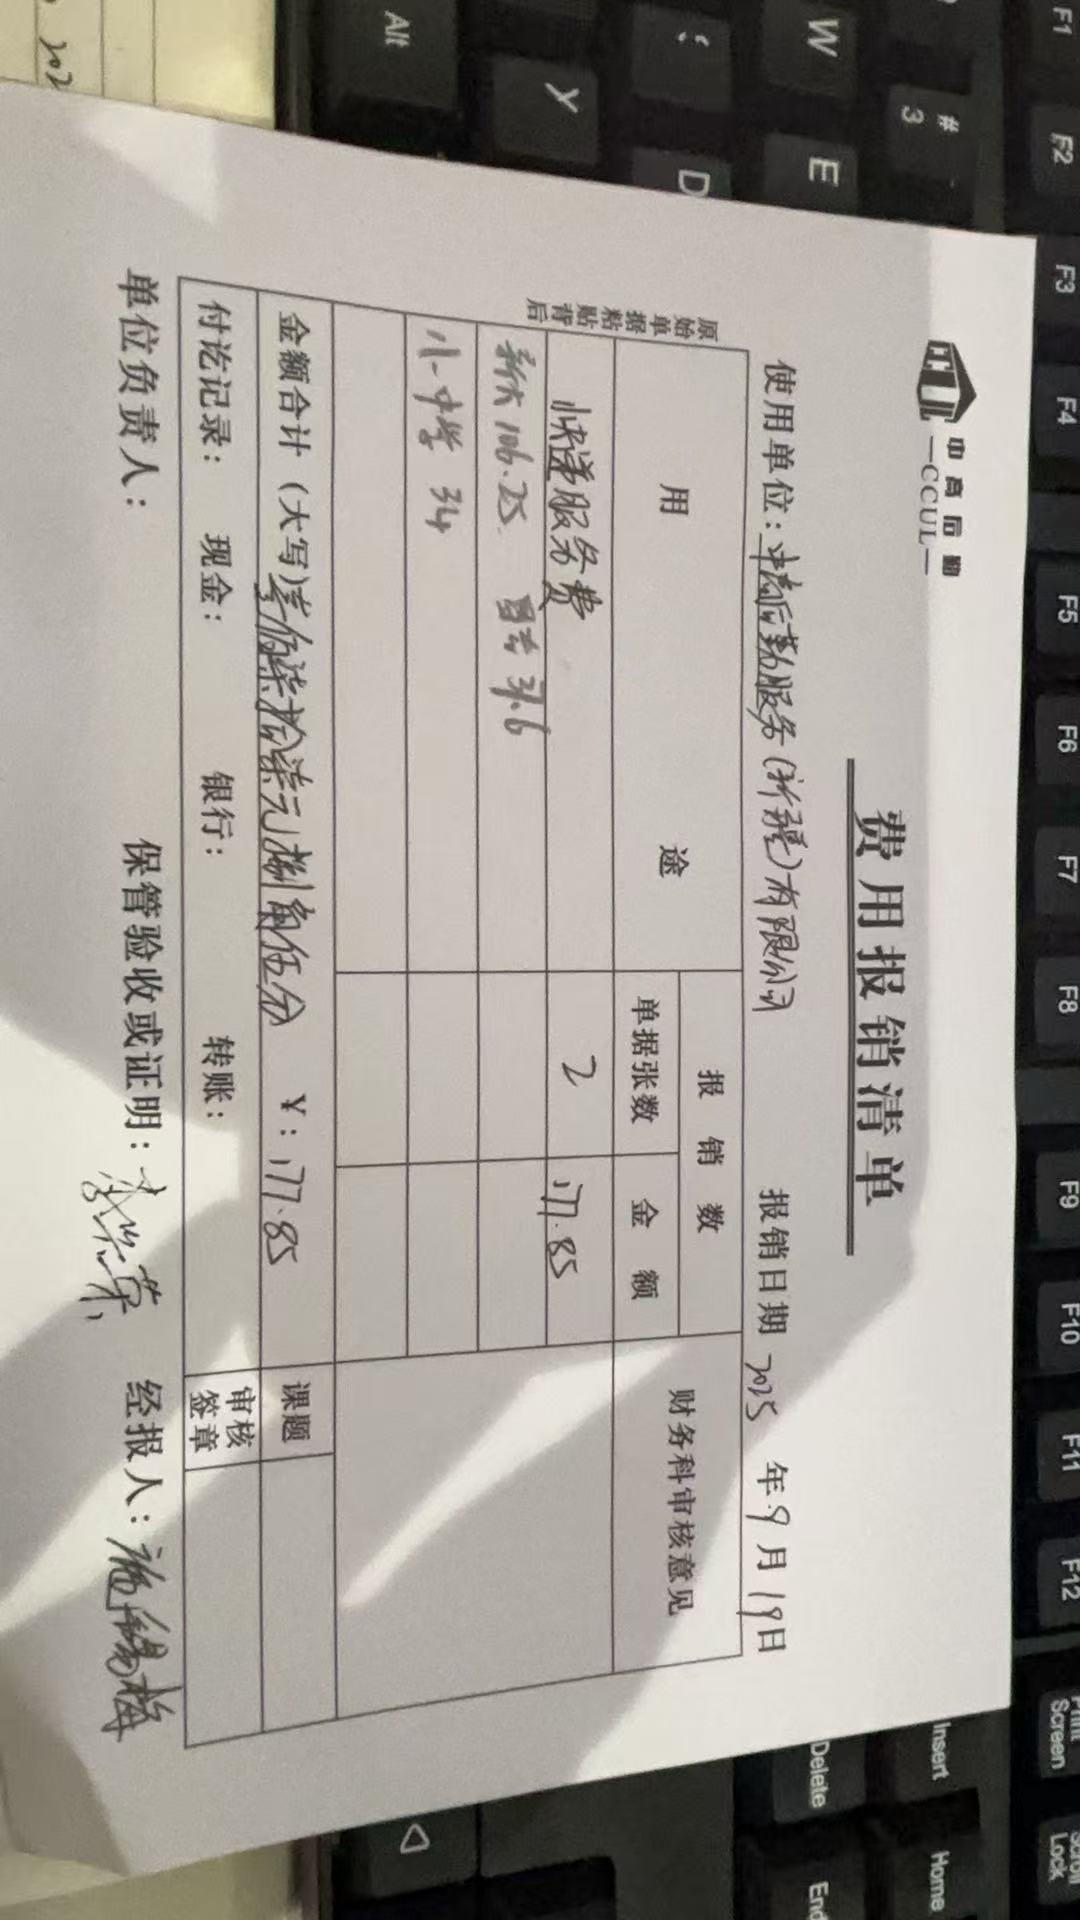 中高后勤
—CCUL—
费用报销清单
使用单位：中高后勤服务（新疆）有限公司 报销日期 2025 年 9 月 19 日
原始单据粘贴背后
用 途
报 销 数
单据张数
金 额
财务科审核意见
快递服务费 2 177.85
新大 106.25 昌吉 37.6
八一中学 34
金额合计（大写）壹佰柒拾柒元捌角伍分 ￥：177.85
课题
付讫记录： 现金： 银行： 转账：
审核签章
单位负责人： 保管验收或证明： 经报人：
Alt
Y
W
E
D
#
3
F1
F2
F3
F4
F5
F6
F7
F8
F9
F10
F11
F12
Print
Screen
Scroll
Lock
Insert
Home
Delete
End
202